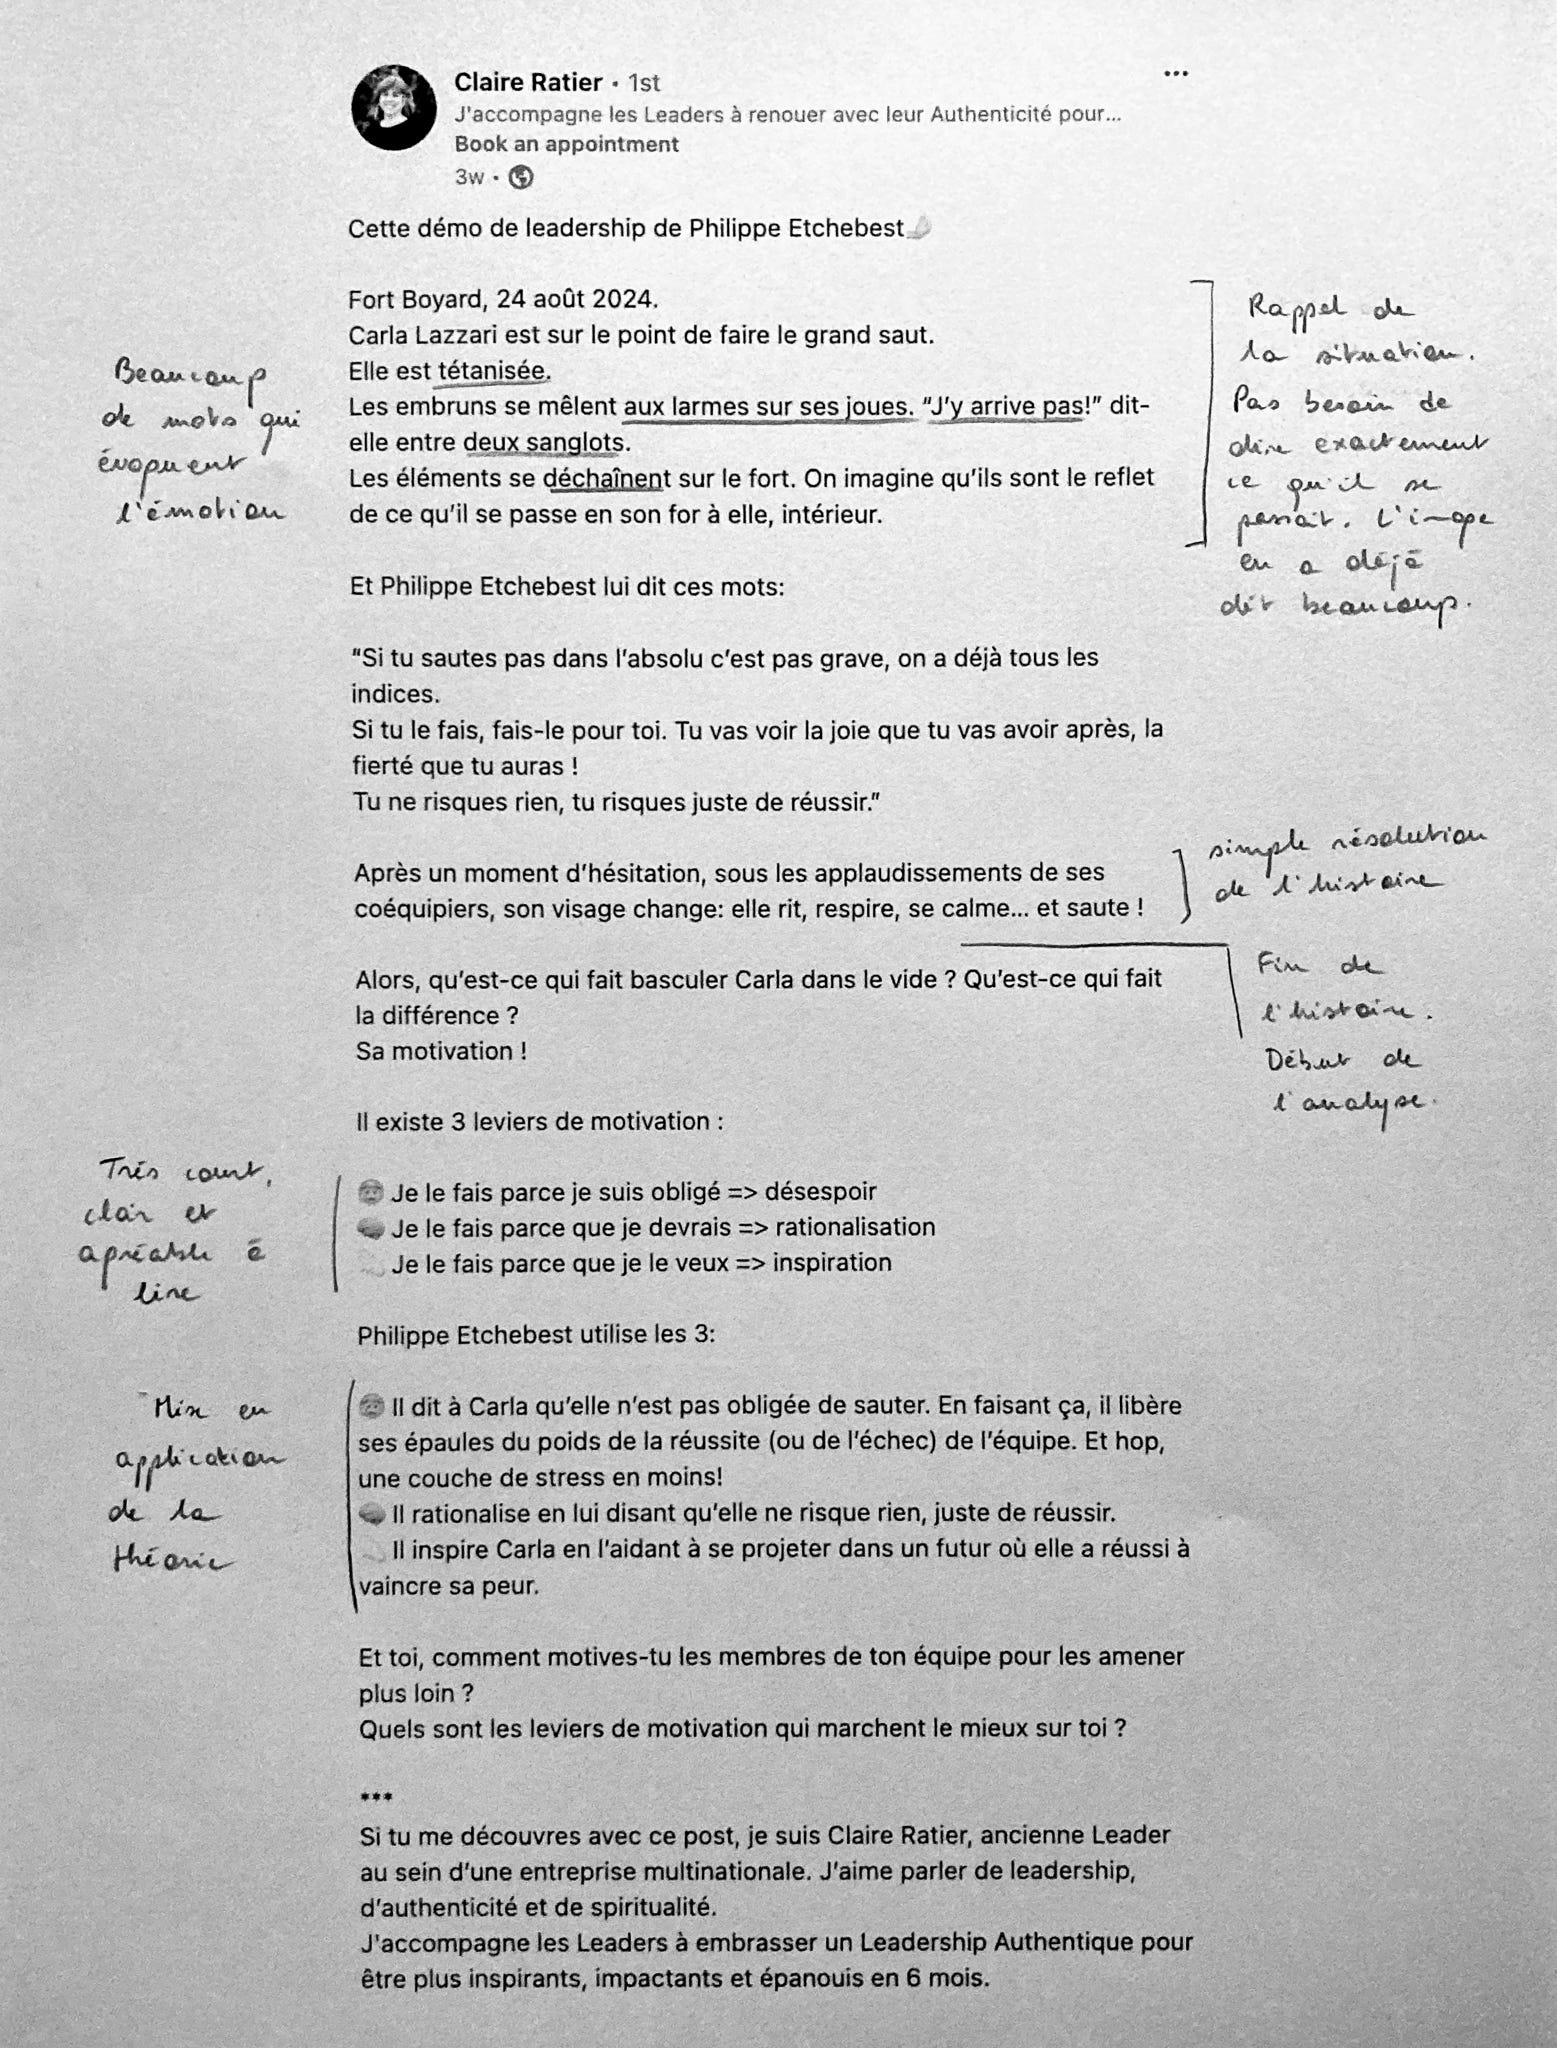 Claire Ratier • 1st
...
J'accompagne les Leaders à renouer avec leur Authenticité pour...
Book an appointment
3w •
Cette démo de leadership de Philippe Etchebest
Fort Boyard, 24 août 2024.
Carla Lazzari est sur le point de faire le grand saut.
Elle est tétanisée.
Les embruns se mêlent aux larmes sur ses joues. “J’y arrive pas!” dit-
elle entre deux sanglots.
Les éléments se déchaînent sur le fort. On imagine qu’ils sont le reflet
de ce qu’il se passe en son for à elle, intérieur.
Beaucoup
de mots qui
évoquent
l'émotion
Rappel de
la situation.
Pas besoin de
dire exactement
ce qu'il se
passait. L'image
en a déjà
dit beaucoup.
Et Philippe Etchebest lui dit ces mots:
“Si tu sautes pas dans l’absolu c’est pas grave, on a déjà tous les
indices.
Si tu le fais, fais-le pour toi. Tu vas voir la joie que tu vas avoir après, la
fierté que tu auras !
Tu ne risques rien, tu risques juste de réussir.”
Après un moment d’hésitation, sous les applaudissements de ses
coéquipiers, son visage change: elle rit, respire, se calme... et saute !
simple résolution
de l'histoire
Alors, qu’est-ce qui fait basculer Carla dans le vide ? Qu’est-ce qui fait
la différence ?
Sa motivation !
Fin de
l'histoire.
Début de
l'analyse.
Il existe 3 leviers de motivation :
Je le fais parce je suis obligé => désespoir
Je le fais parce que je devrais => rationalisation
Je le fais parce que je le veux => inspiration
Très court,
clair et
agréable à
lire
Philippe Etchebest utilise les 3:
Il dit à Carla qu’elle n’est pas obligée de sauter. En faisant ça, il libère
ses épaules du poids de la réussite (ou de l’échec) de l’équipe. Et hop,
une couche de stress en moins!
Il rationalise en lui disant qu’elle ne risque rien, juste de réussir.
Il inspire Carla en l’aidant à se projeter dans un futur où elle a réussi à
vaincre sa peur.
Mise en
application
de la
théorie
Et toi, comment motives-tu les membres de ton équipe pour les amener
plus loin ?
Quels sont les leviers de motivation qui marchent le mieux sur toi ?
***
Si tu me découvres avec ce post, je suis Claire Ratier, ancienne Leader
au sein d’une entreprise multinationale. J’aime parler de leadership,
d’authenticité et de spiritualité.
J'accompagne les Leaders à embrasser un Leadership Authentique pour
être plus inspirants, impactants et épanouis en 6 mois.